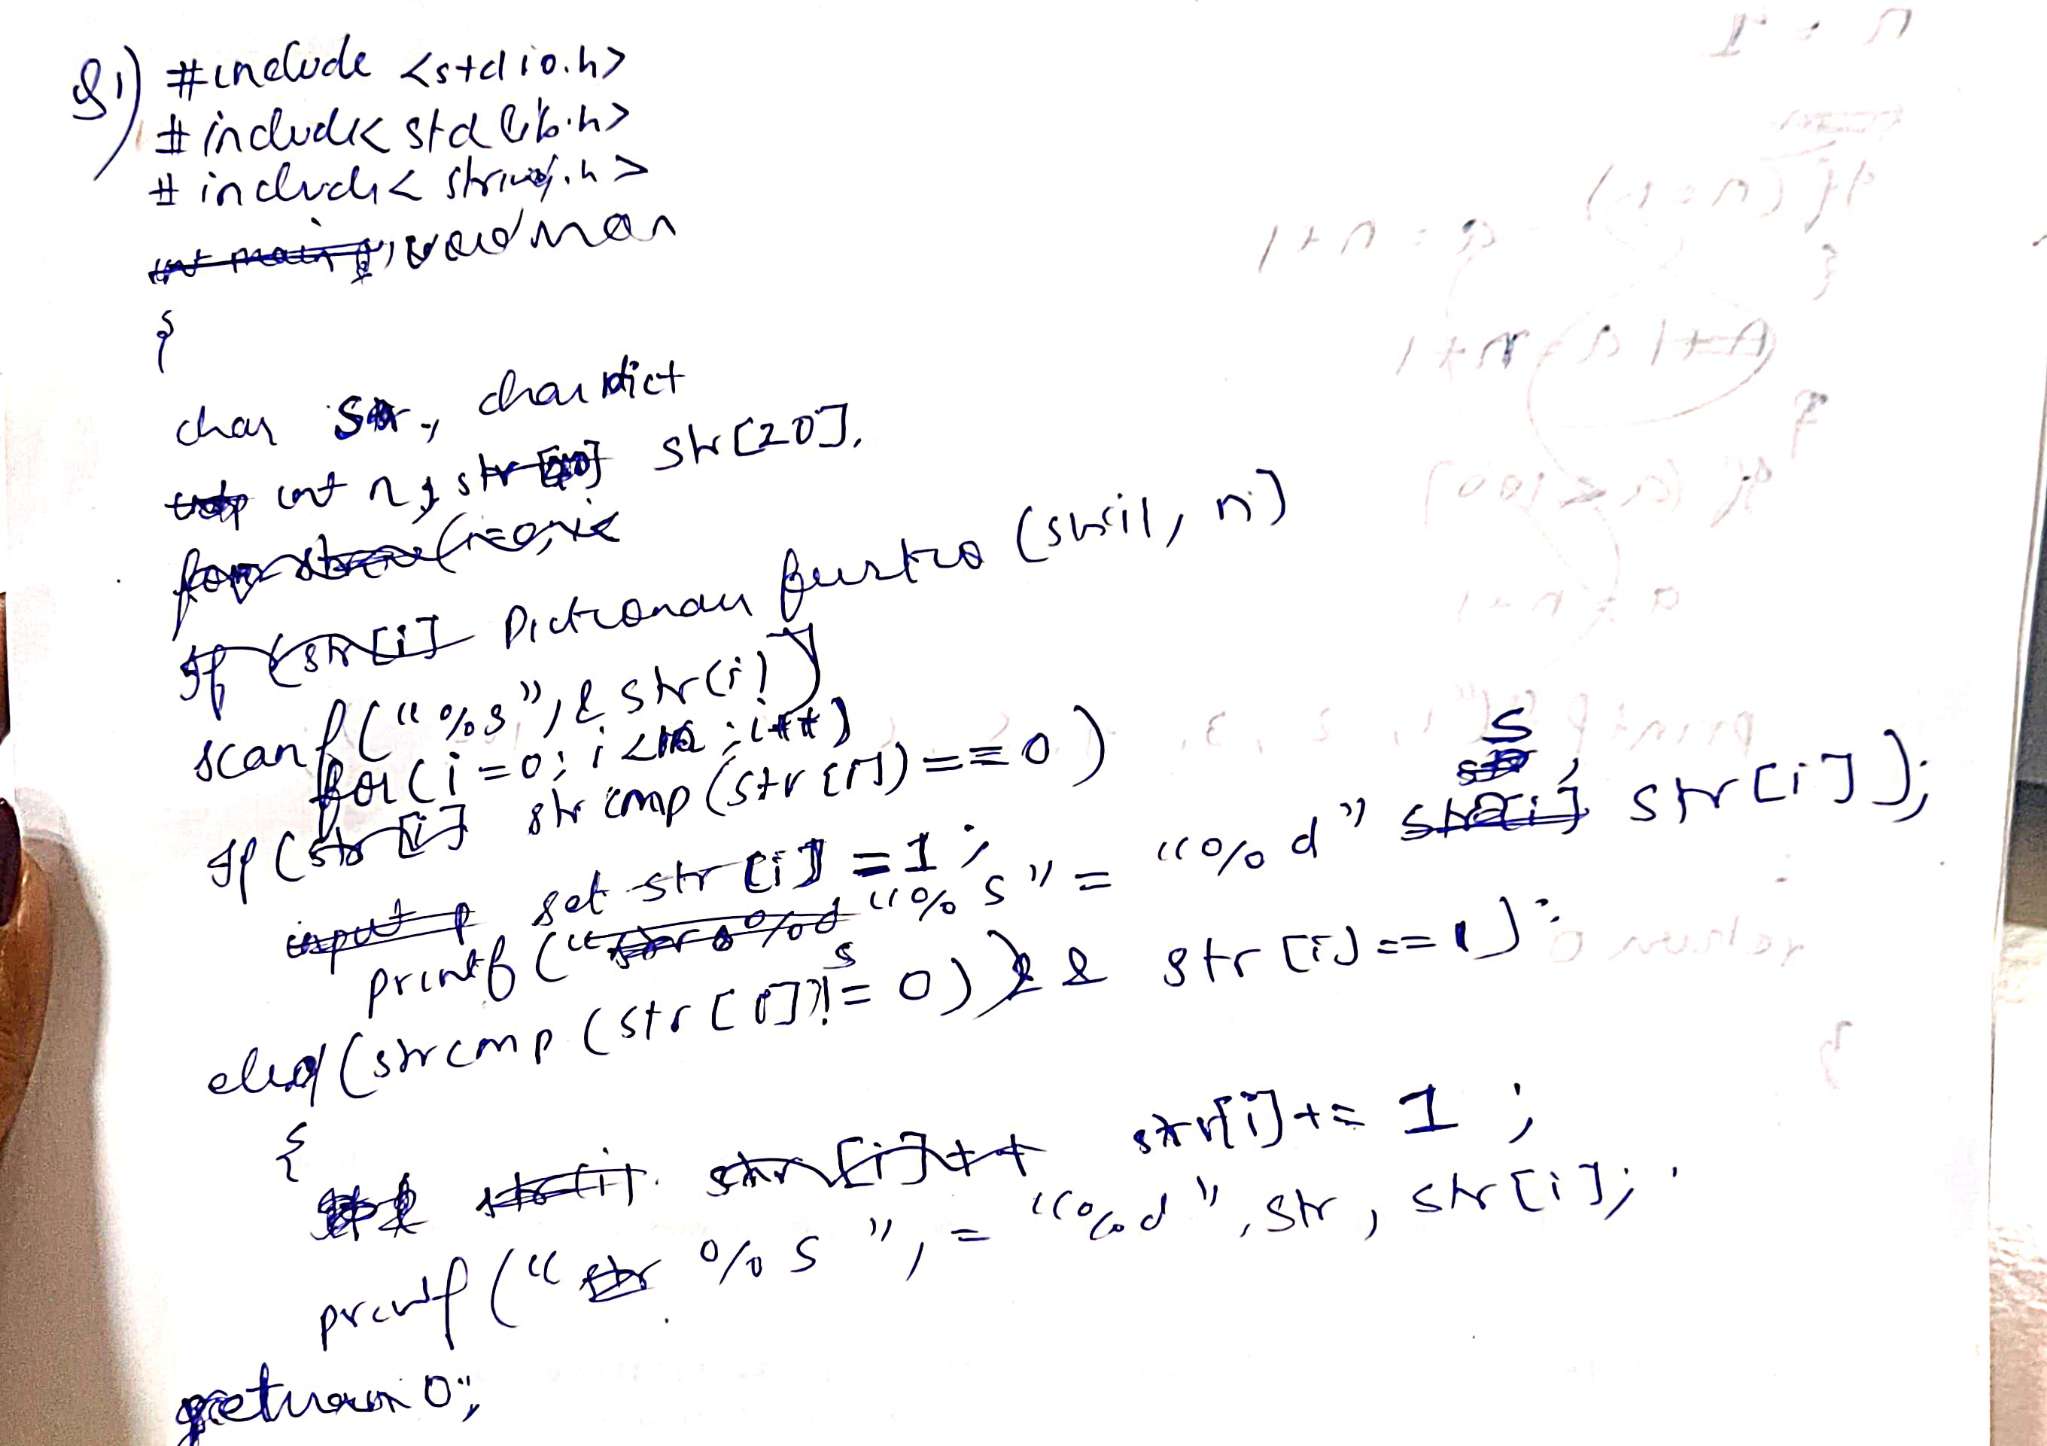 Q1) #include <stdio.h>
#include< stdlib.h>
#include< string.h>
int main void man
{
char str, char dict
int n, str[20] str[20],
for (i=0;i<
If (str[i] Dictionary function (str[i], n)
scanf("%s", & str[i])
for(i=0; i < ; i++)
If (str[i] strcmp(str[i])==0)
input set str[i] = 1;
printf(" "%s" = "%d" str[i], str[i]);
elseif(strcmp(str[i])!=0) && str[i]==1):
{
str[i] str[i]++ str[i]+= 1 ;
printf("str %s", = "%d", str, str[i];
return 0;